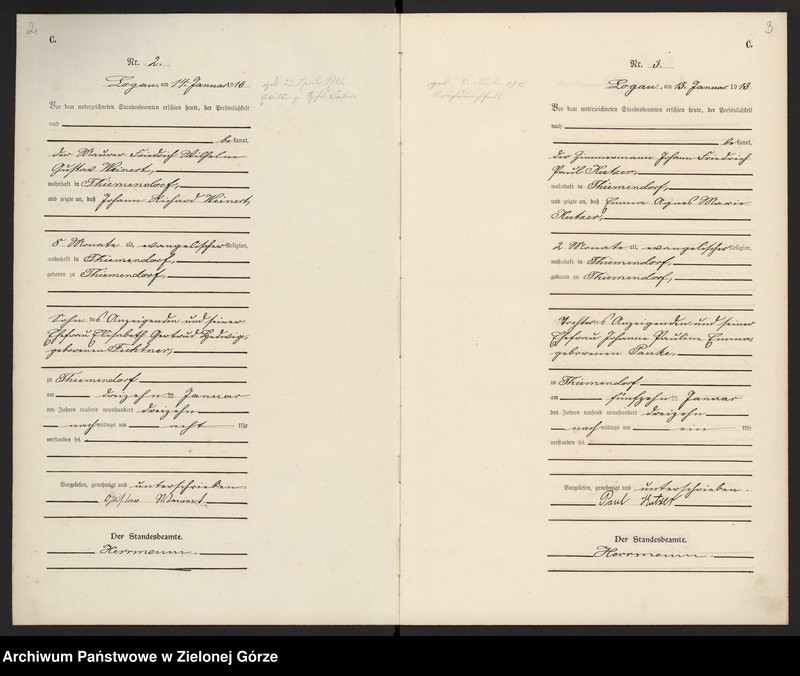 2.
C.
Nr. 2.
Logau, am 14. Januar 1913
Vor dem unterzeichneten Standesbeamten erschien heute, der Persönlichkeit
nach
be kannt,
der Maurer Friedrich Wilhelm
Gustav Weinert,
wohnhaft in Thiemendorf,
und zeigte an, daß Johann Richard Weinert,
8 Monate alt, evangelischer Religion,
wohnhaft in Thiemendorf,
geboren zu Thiemendorf,
Sohn des Anzeigenden und seiner
Ehefrau Elisabeth Gertrud Hedwig,
geborenen Fichtner,
zu Thiemendorf
am dreizehn ten Januar
des Jahres tausend neunhundert dreizehn
nach mittags um acht Uhr
verstorben sei.
Vorgelesen, genehmigt und unterschrieben
Gustav Weinert.
Der Standesbeamte.
Herrmann.
3
C.
Nr. 3.
Logau, am 15. Januar 1913.
Vor dem unterzeichneten Standesbeamten erschien heute, der Persönlichkeit
nach
be kannt,
der Zimmermann Johann Friedrich
Paul Kutzer,
wohnhaft in Thiemendorf,
und zeigte an, daß Emma Agnes Marie
Kutzer,
2 Monate alt, evangelischer Religion,
wohnhaft in Thiemendorf,
geboren zu Thiemendorf,
Tochter des Anzeigenden und seiner
Ehefrau Johanne Pauline Emma
geborenen Panke,
zu Thiemendorf
am fünfzehn ten Januar
des Jahres tausend neunhundert dreizehn
nach mittags um ein Uhr
verstorben sei.
Vorgelesen, genehmigt und unterschrieben.
Paul Kutzer
Der Standesbeamte.
Herrmann.
Archiwum Państwowe w Zielonej Górze